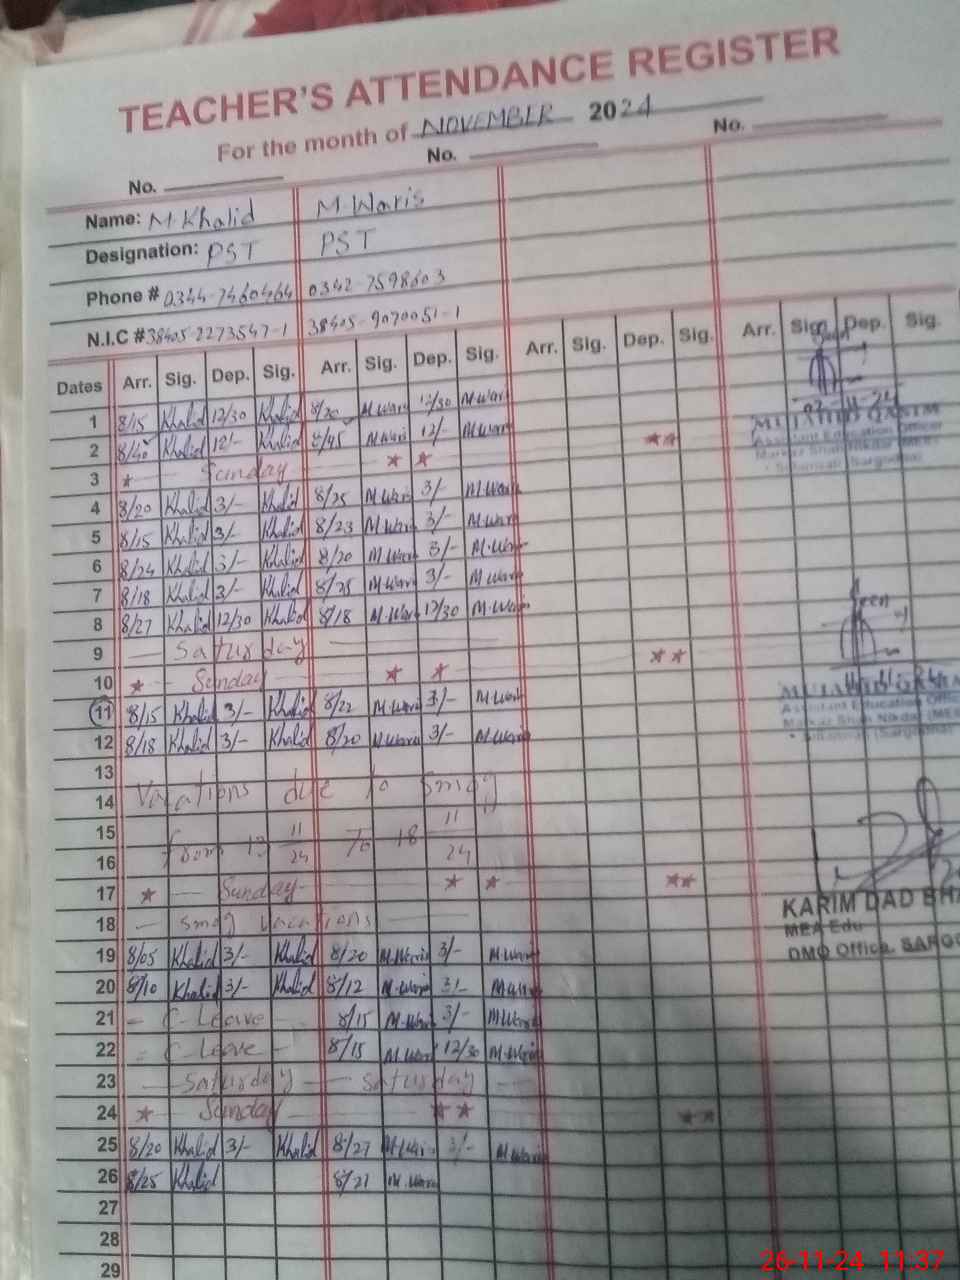 TEACHER'S ATTENDANCE REGISTER
For the month of NOVEMBER 2024
No. No. No.
Name: M.Khalid M.Waris
Designation: PST PST
Phone # 0344-7460464 0342-7598603
N.I.C #38405-2273547-1 38405-9070051-1
Dates Arr. Sig. Dep. Sig. Arr. Sig. Dep. Sig. Arr. Sig. Dep. Sig. Arr. Sig. Dep. Sig.
1 8/15 Khalid 12/30 Khalid 8/20 M.Waris 12/30 M.Waris
2 8/40 Khalid 12/- Khalid 8/45 M.Waris 12/- M.Waris
3 Sunday
4 8/20 Khalid 3/- Khalid 8/25 M.Waris 3/- M.Waris
5 8/15 Khalid 3/- Khalid 8/23 M.Waris 3/- M.Waris
6 8/24 Khalid 3/- Khalid 8/20 M.Waris 3/- M.Waris
7 8/18 Khalid 3/- Khalid 8/25 M.Waris 3/- M.Waris
8 8/27 Khalid 12/30 Khalid 8/18 M.Waris 12/30 M.Waris
9 Saturday
10 Sunday
11 8/15 Khalid 3/- Khalid 8/22 M.Waris 3/- M.Waris
12 8/18 Khalid 3/- Khalid 8/20 M.Waris 3/- M.Waris
13
14 Vacations due to smog
15
16 from 13 11/24 To 18 11/24
17 Sunday
18 smog vacations
19 8/05 Khalid 3/- Khalid 8/20 M.Waris 3/- M.Waris
20 8/10 Khalid 3/- Khalid 8/12 M.Waris 3/- M.Waris
21 C-Leave 8/15 M.Waris 3/- M.Waris
22 C-Leave 8/15 M.Waris 12/30 M.Waris
23 Saturday Saturday
24 Sunday
25 8/20 Khalid 3/- Khalid 8/27 M.Waris 3/- M.Waris
26 8/25 Khalid 8/21 M.Waris
27
28
29
MUJAHID QASIM
Assistant Education Officer
Seen
Assistant Education Offic
KARIM DAD BHA
MEA Edu
DMO Office, SARGO
26-11-24 11:37